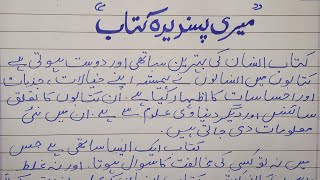 "میری پسندیدہ کتاب"
کتاب انسان کی بہترین ساتھی اور دوست ہوتی ہے
کتابوں میں انسانوں نے ہمیشہ اپنے خیالات، جذبات
اور احساسات کا اظہار کیا ہے۔ ان کتابوں کا تعلق
سائنس اور دیگر دنیاوی علوم سے ہے۔ ان میں نئی
معلومات دی جاتی ہیں۔
کتاب ایک ایسا ساتھی ہے جس
میں نہ تو کسی کی مخالفت کا سوال ہوتا اور نہ غلط